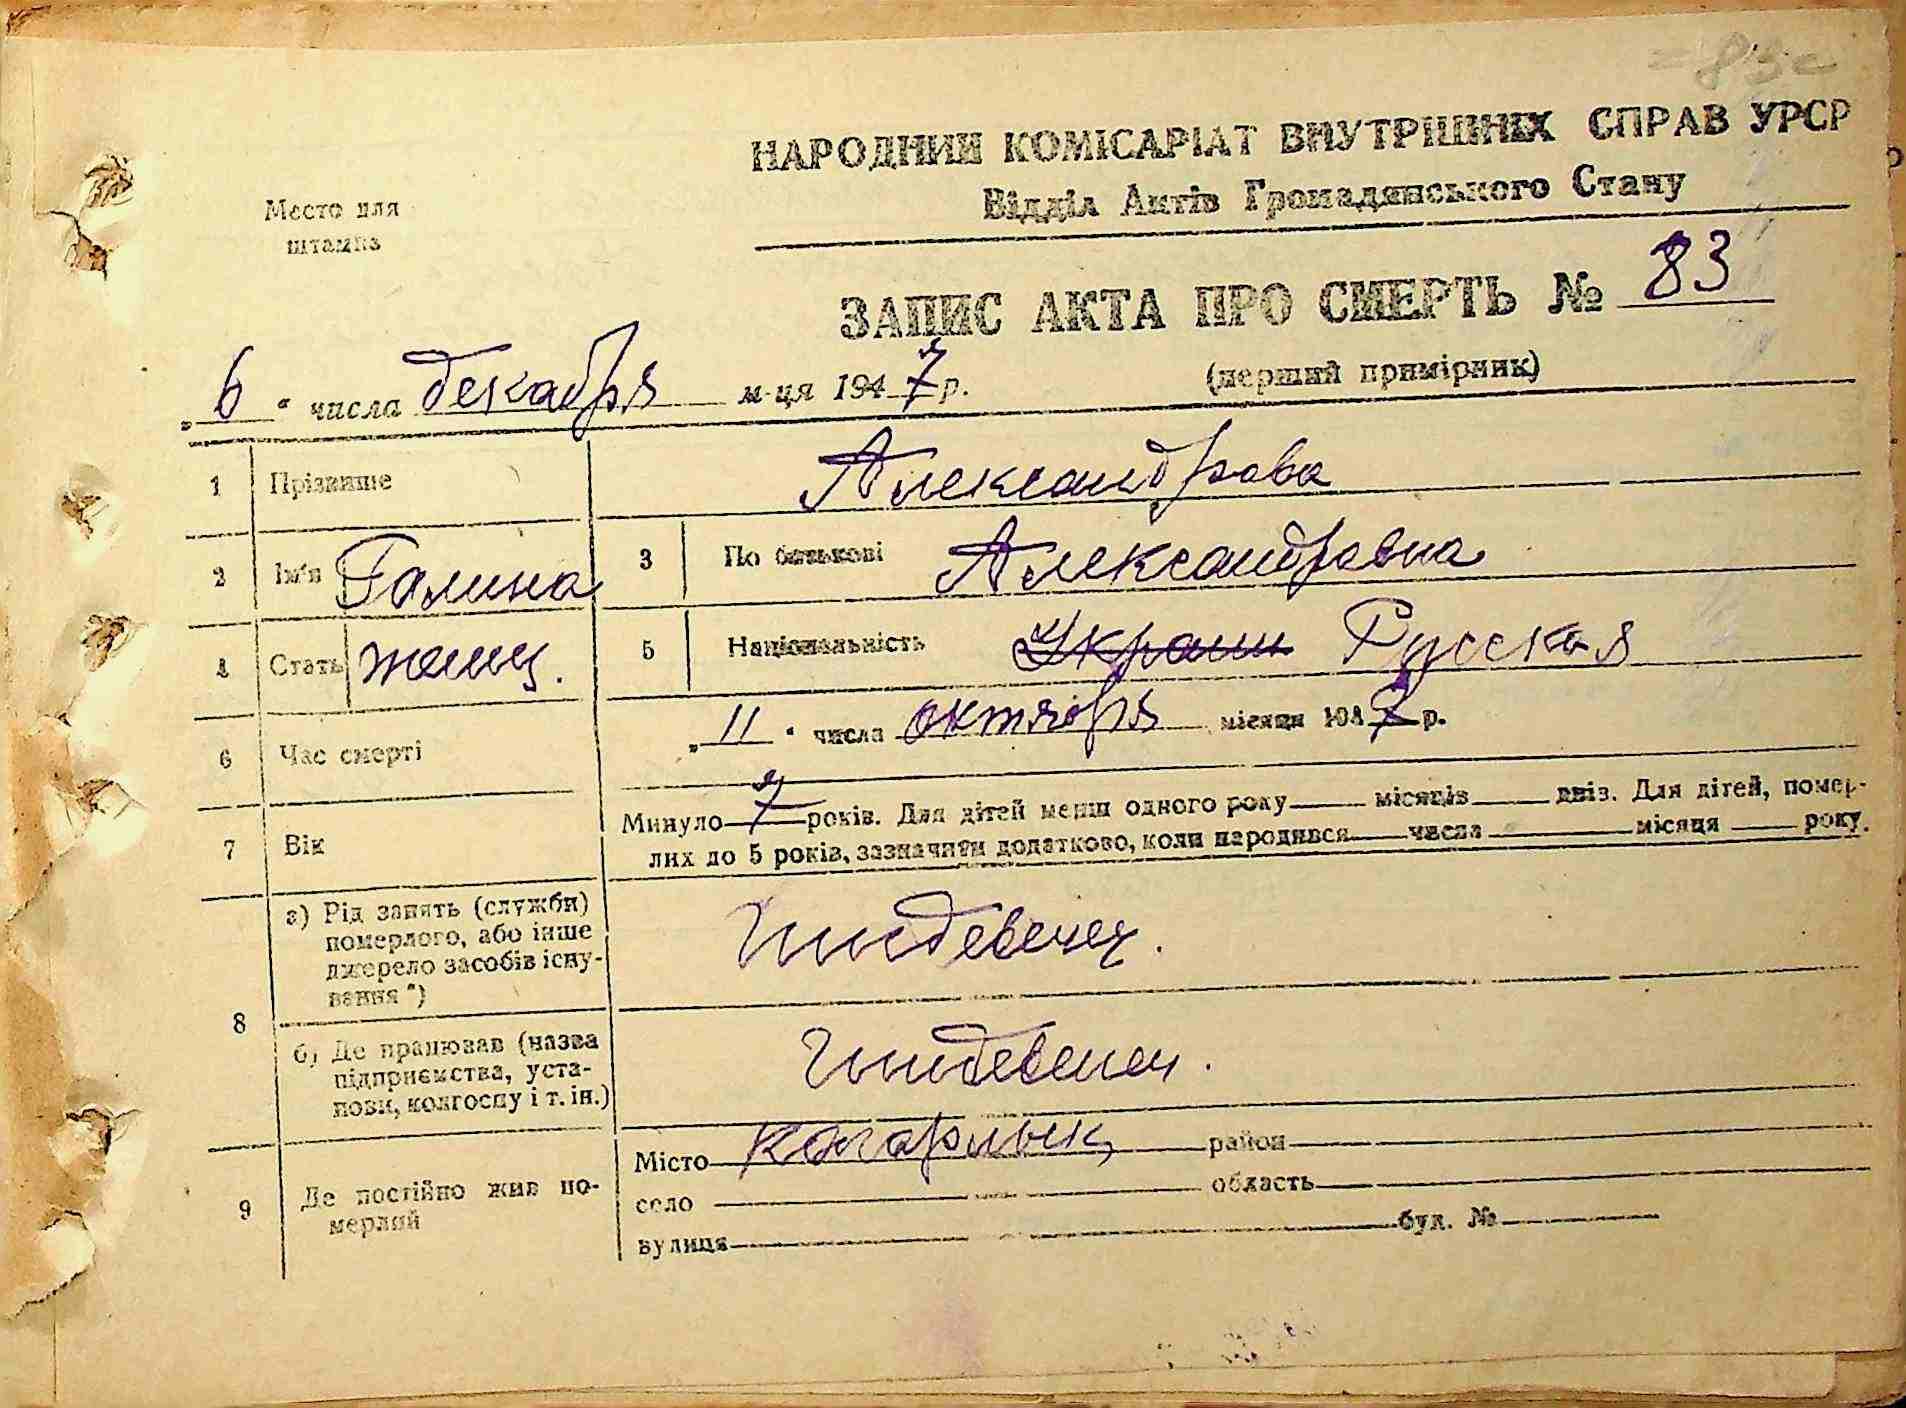 83
НАРОДНИЙ КОМІСАРІАТ ВНУТРІШНІХ СПРАВ УРСР
Відділ Актів Громадянського Стану
Место для
штампа
ЗАПИС АКТА ПРО СМЕРТЬ № 83
(перший примірник)
„6“ числа декабря м-ця 1947 р.
1 Прізвище Александрова
2 Ім'я Галина 3 По батькові Александровна
4 Стать женщ. 5 Національність Украин Русская
6 Час смерті „11“ числа октября місяця 1947 р.
7 Вік Минуло 7 років. Для дітей менш одного року місяців днів. Для дітей, помер-
лих до 5 років, зазначити додатково, коли народився числа місяця року.
8 а) Рід занять (служби)
померлого, або інше
джерело засобів існу-
вання *)
Иждевенец.
б) Де працював (назва
підприємства, уста-
нови, колгоспу і т. ін.)
Иждевенец.
9 Де постійно жив по-
мерлий
Місто Кагарлык район
село область
вулиця буд. №